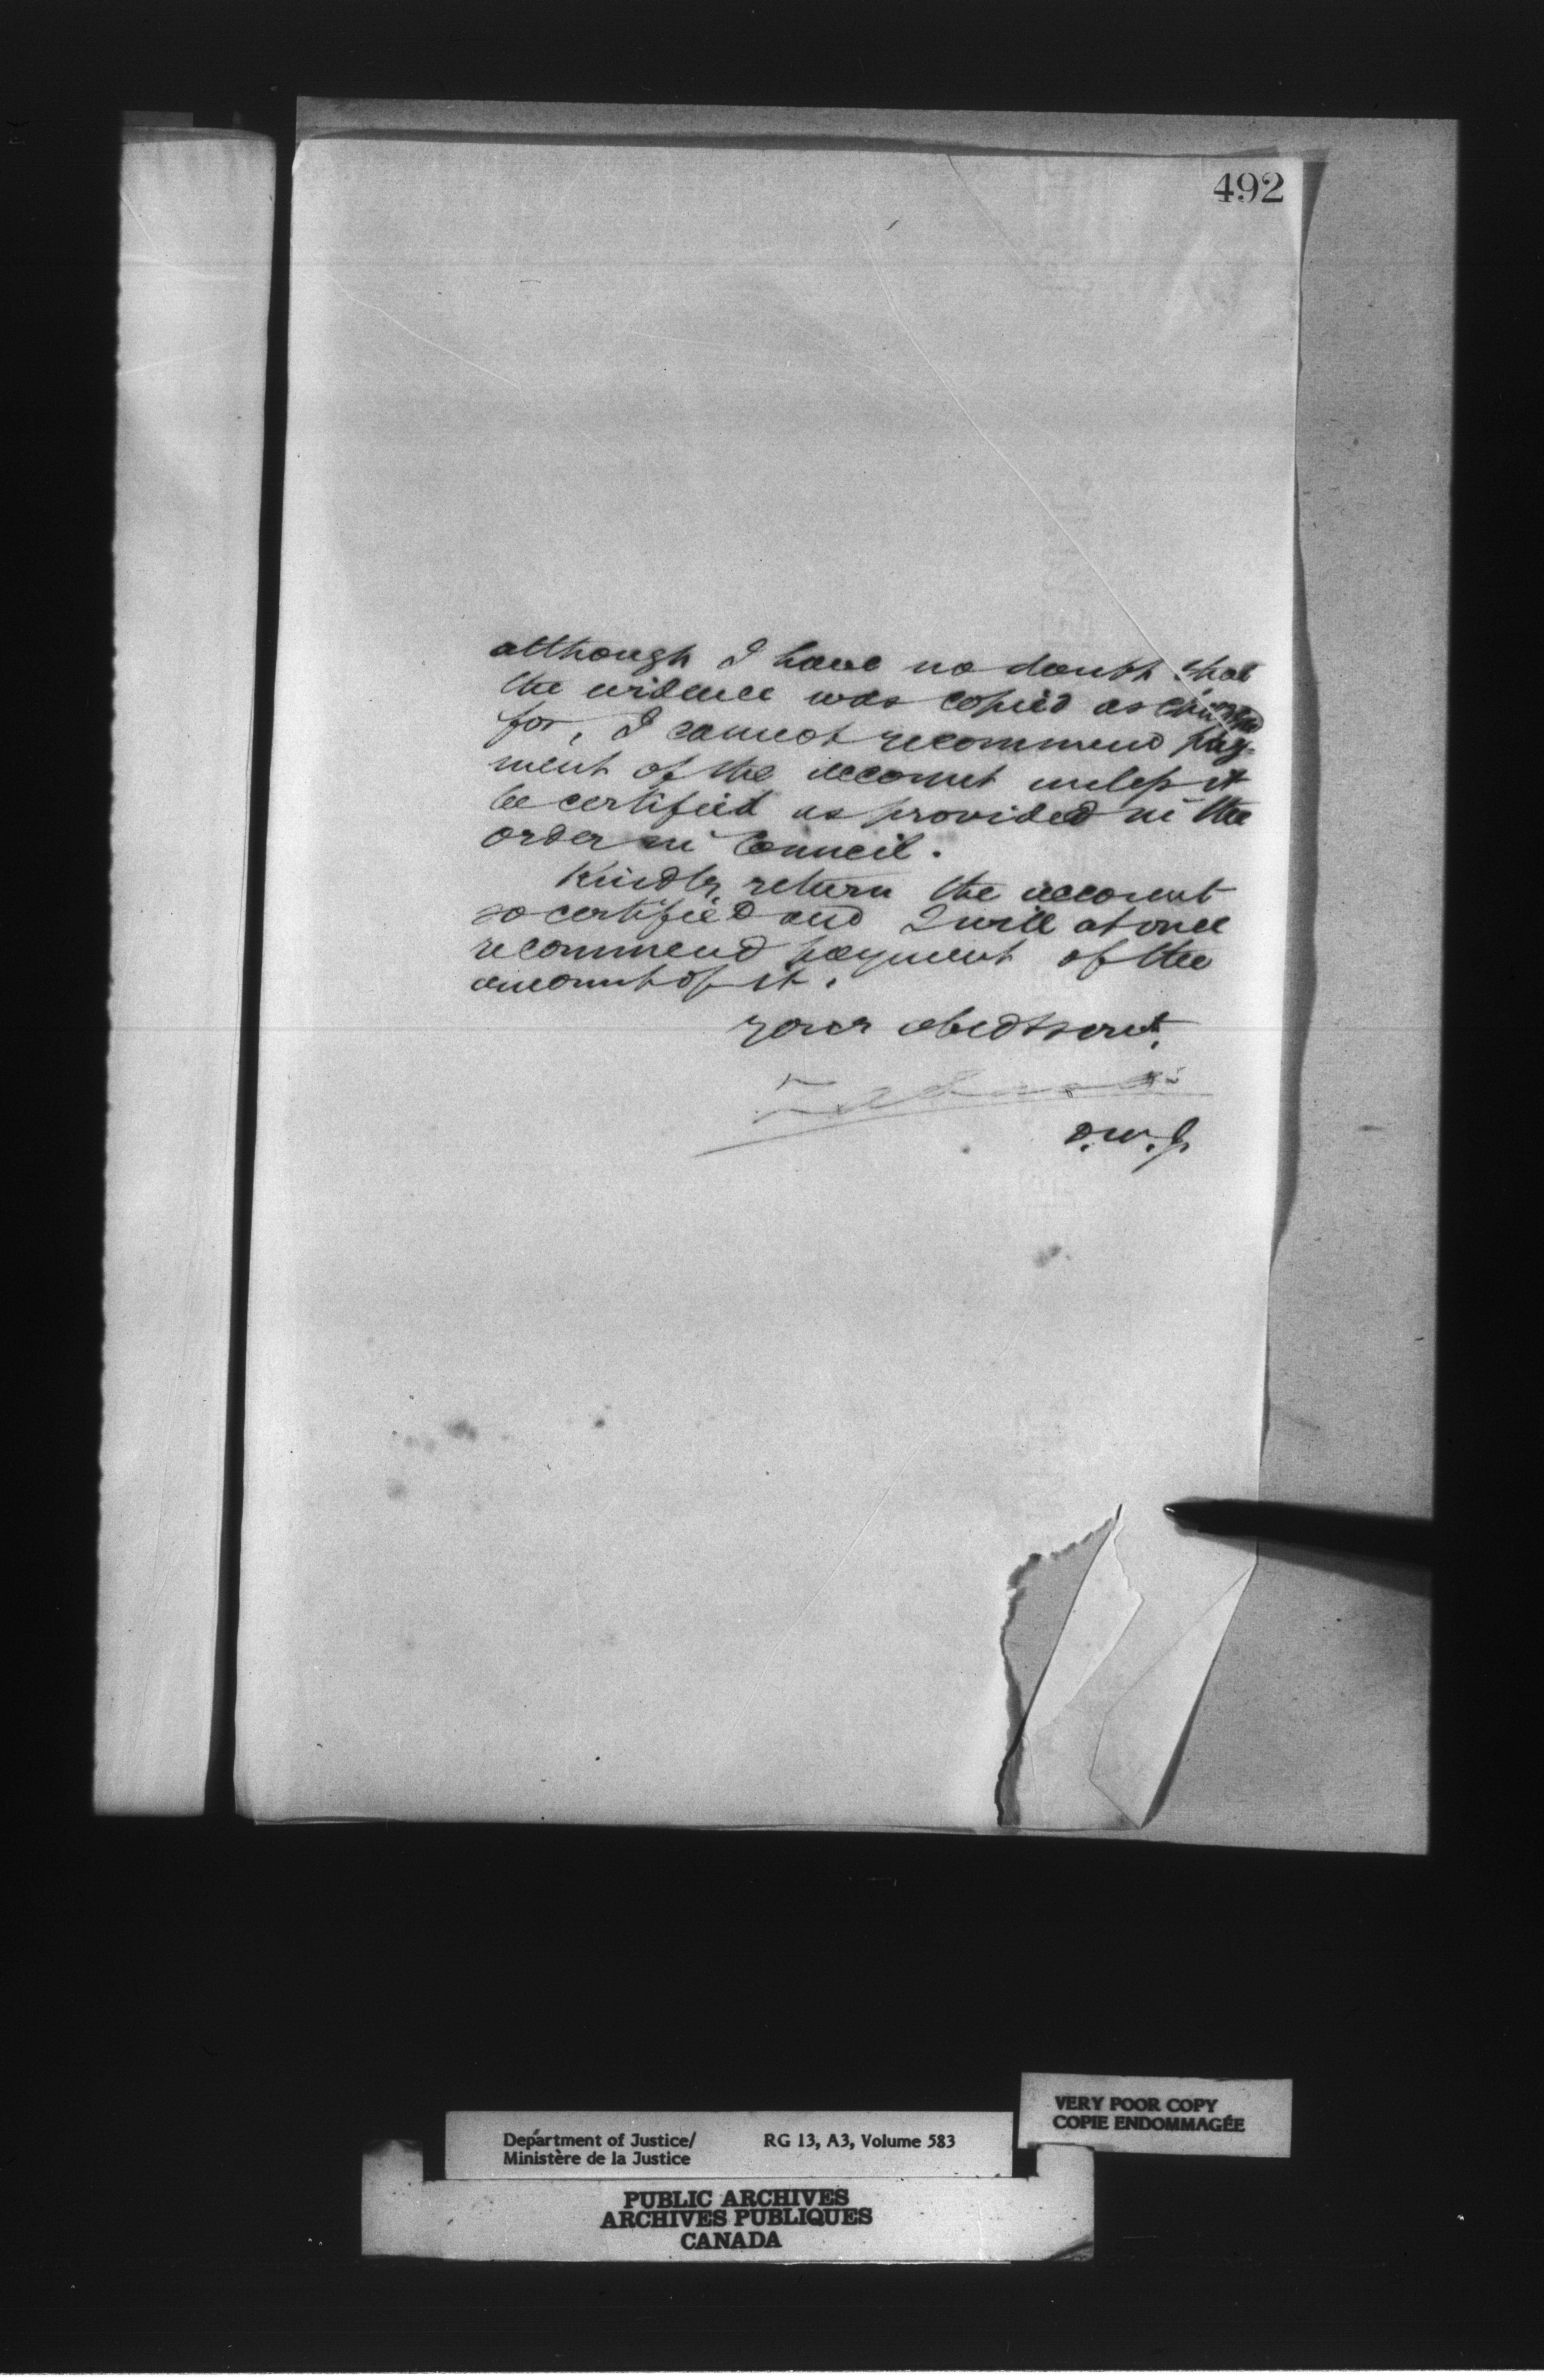 492
although I have no doubt that
the evidence was copied as charged
for, I cannot recommend pay-
ment of the account unless it
be certified as provided in the
order in Council.
Kindly return the account
so certified and I will at once
recommend payment of the
amount of it.
Your obedt servt.
D.M.J.
VERY POOR COPY
COPIE ENDOMMAGÉE
Department of Justice/ RG 13, A3, Volume 583
Ministère de la Justice
PUBLIC ARCHIVES
ARCHIVES PUBLIQUES
CANADA